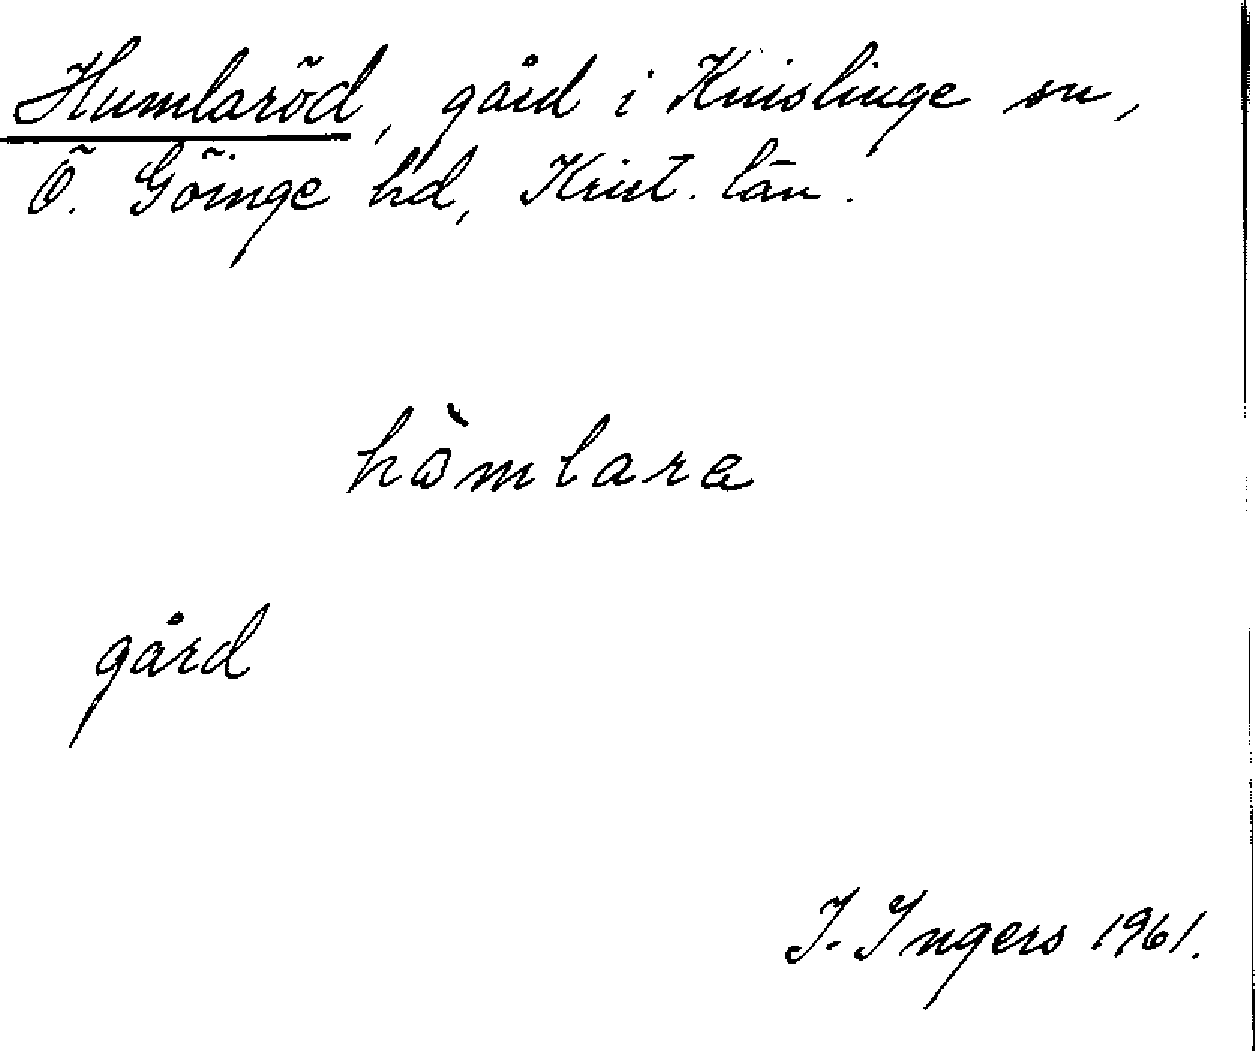 Humlaröd, gård i Knislinge sn,
Ö. Göinge hd, Krist. län.
hòmlara
gård
I. Ingers 1961.